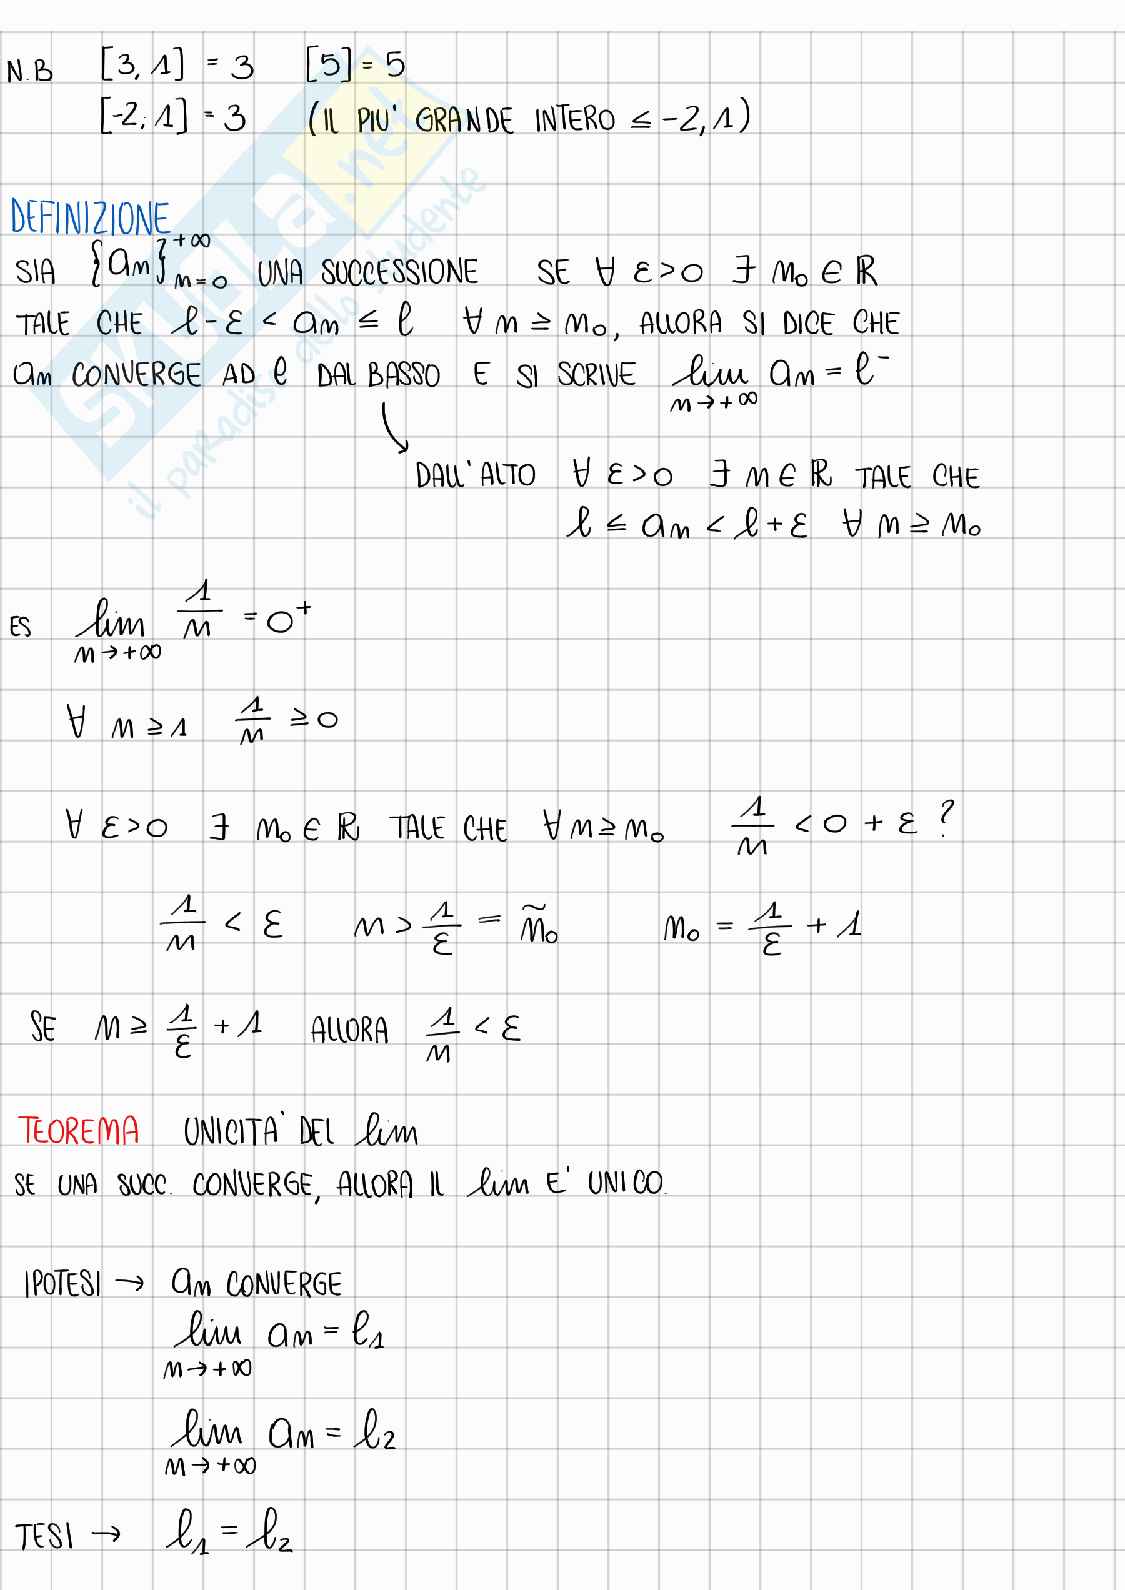 N.B [3,1] = 3 [5] = 5
[-2,1] = 3 (IL PIU' GRANDE INTERO ≤ -2,1)
DEFINIZIONE
SIA {an}_{n=0}^{+∞} UNA SUCCESSIONE SE ∀ ε>0 ∃ n₀ ∈ ℝ
TALE CHE ℓ-ε < an ≤ ℓ ∀ n ≥ n₀, ALLORA SI DICE CHE
an CONVERGE AD ℓ DAL BASSO E SI SCRIVE lim_{n→+∞} an = ℓ⁻
DALL'ALTO ∀ ε>0 ∃ n ∈ ℝ TALE CHE
ℓ ≤ an < ℓ+ε ∀ n ≥ n₀
ES lim_{n→+∞} 1/n = 0⁺
∀ n ≥ 1 1/n ≥ 0
∀ ε>0 ∃ n₀ ∈ ℝ TALE CHE ∀ n ≥ n₀ 1/n < 0 + ε ?
1/n < ε n > 1/ε = ñ₀ n₀ = 1/ε + 1
SE n ≥ 1/ε + 1 ALLORA 1/n < ε
TEOREMA UNICITA' DEL lim
SE UNA SUCC. CONVERGE, ALLORA IL lim E' UNICO.
IPOTESI → an CONVERGE
lim_{n→+∞} an = ℓ₁
lim_{n→+∞} an = ℓ₂
TESI → ℓ₁ = ℓ₂
SKUOLA.net
il paradiso dello studente